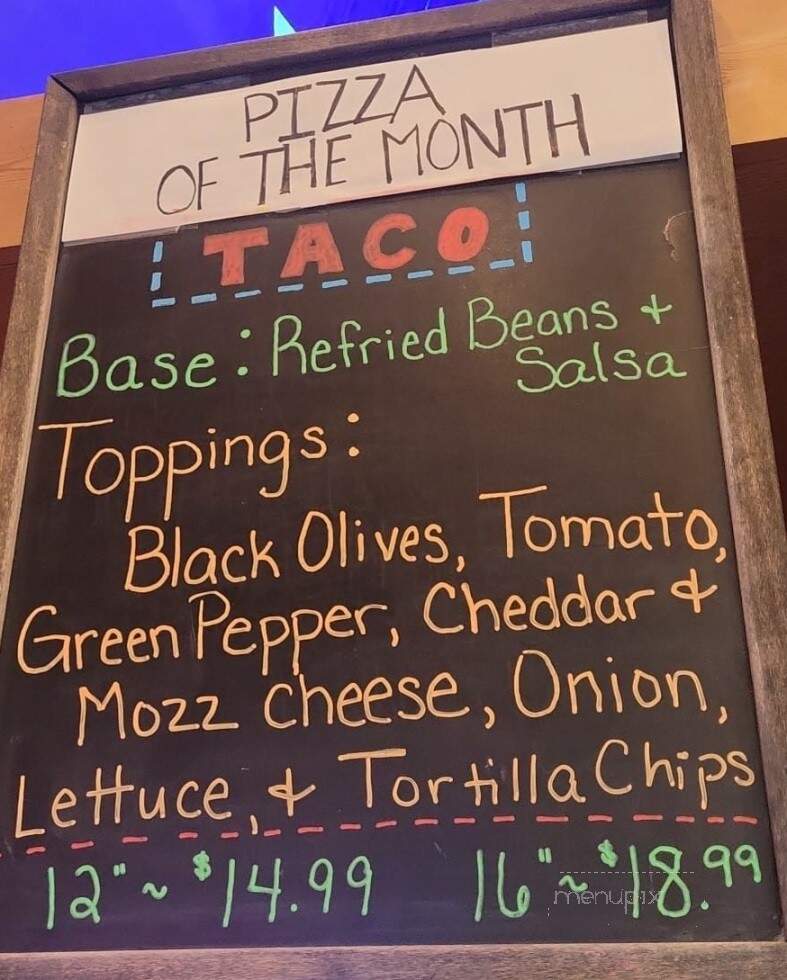 PIZZA
OF THE MONTH
TACO
Base: Refried Beans +
Salsa
Toppings:
Black Olives, Tomato,
Green Pepper, Cheddar &
Mozz cheese, Onion,
Lettuce, & Tortilla Chips
12" ~ $14.99 16" ~ $18.99
menupix